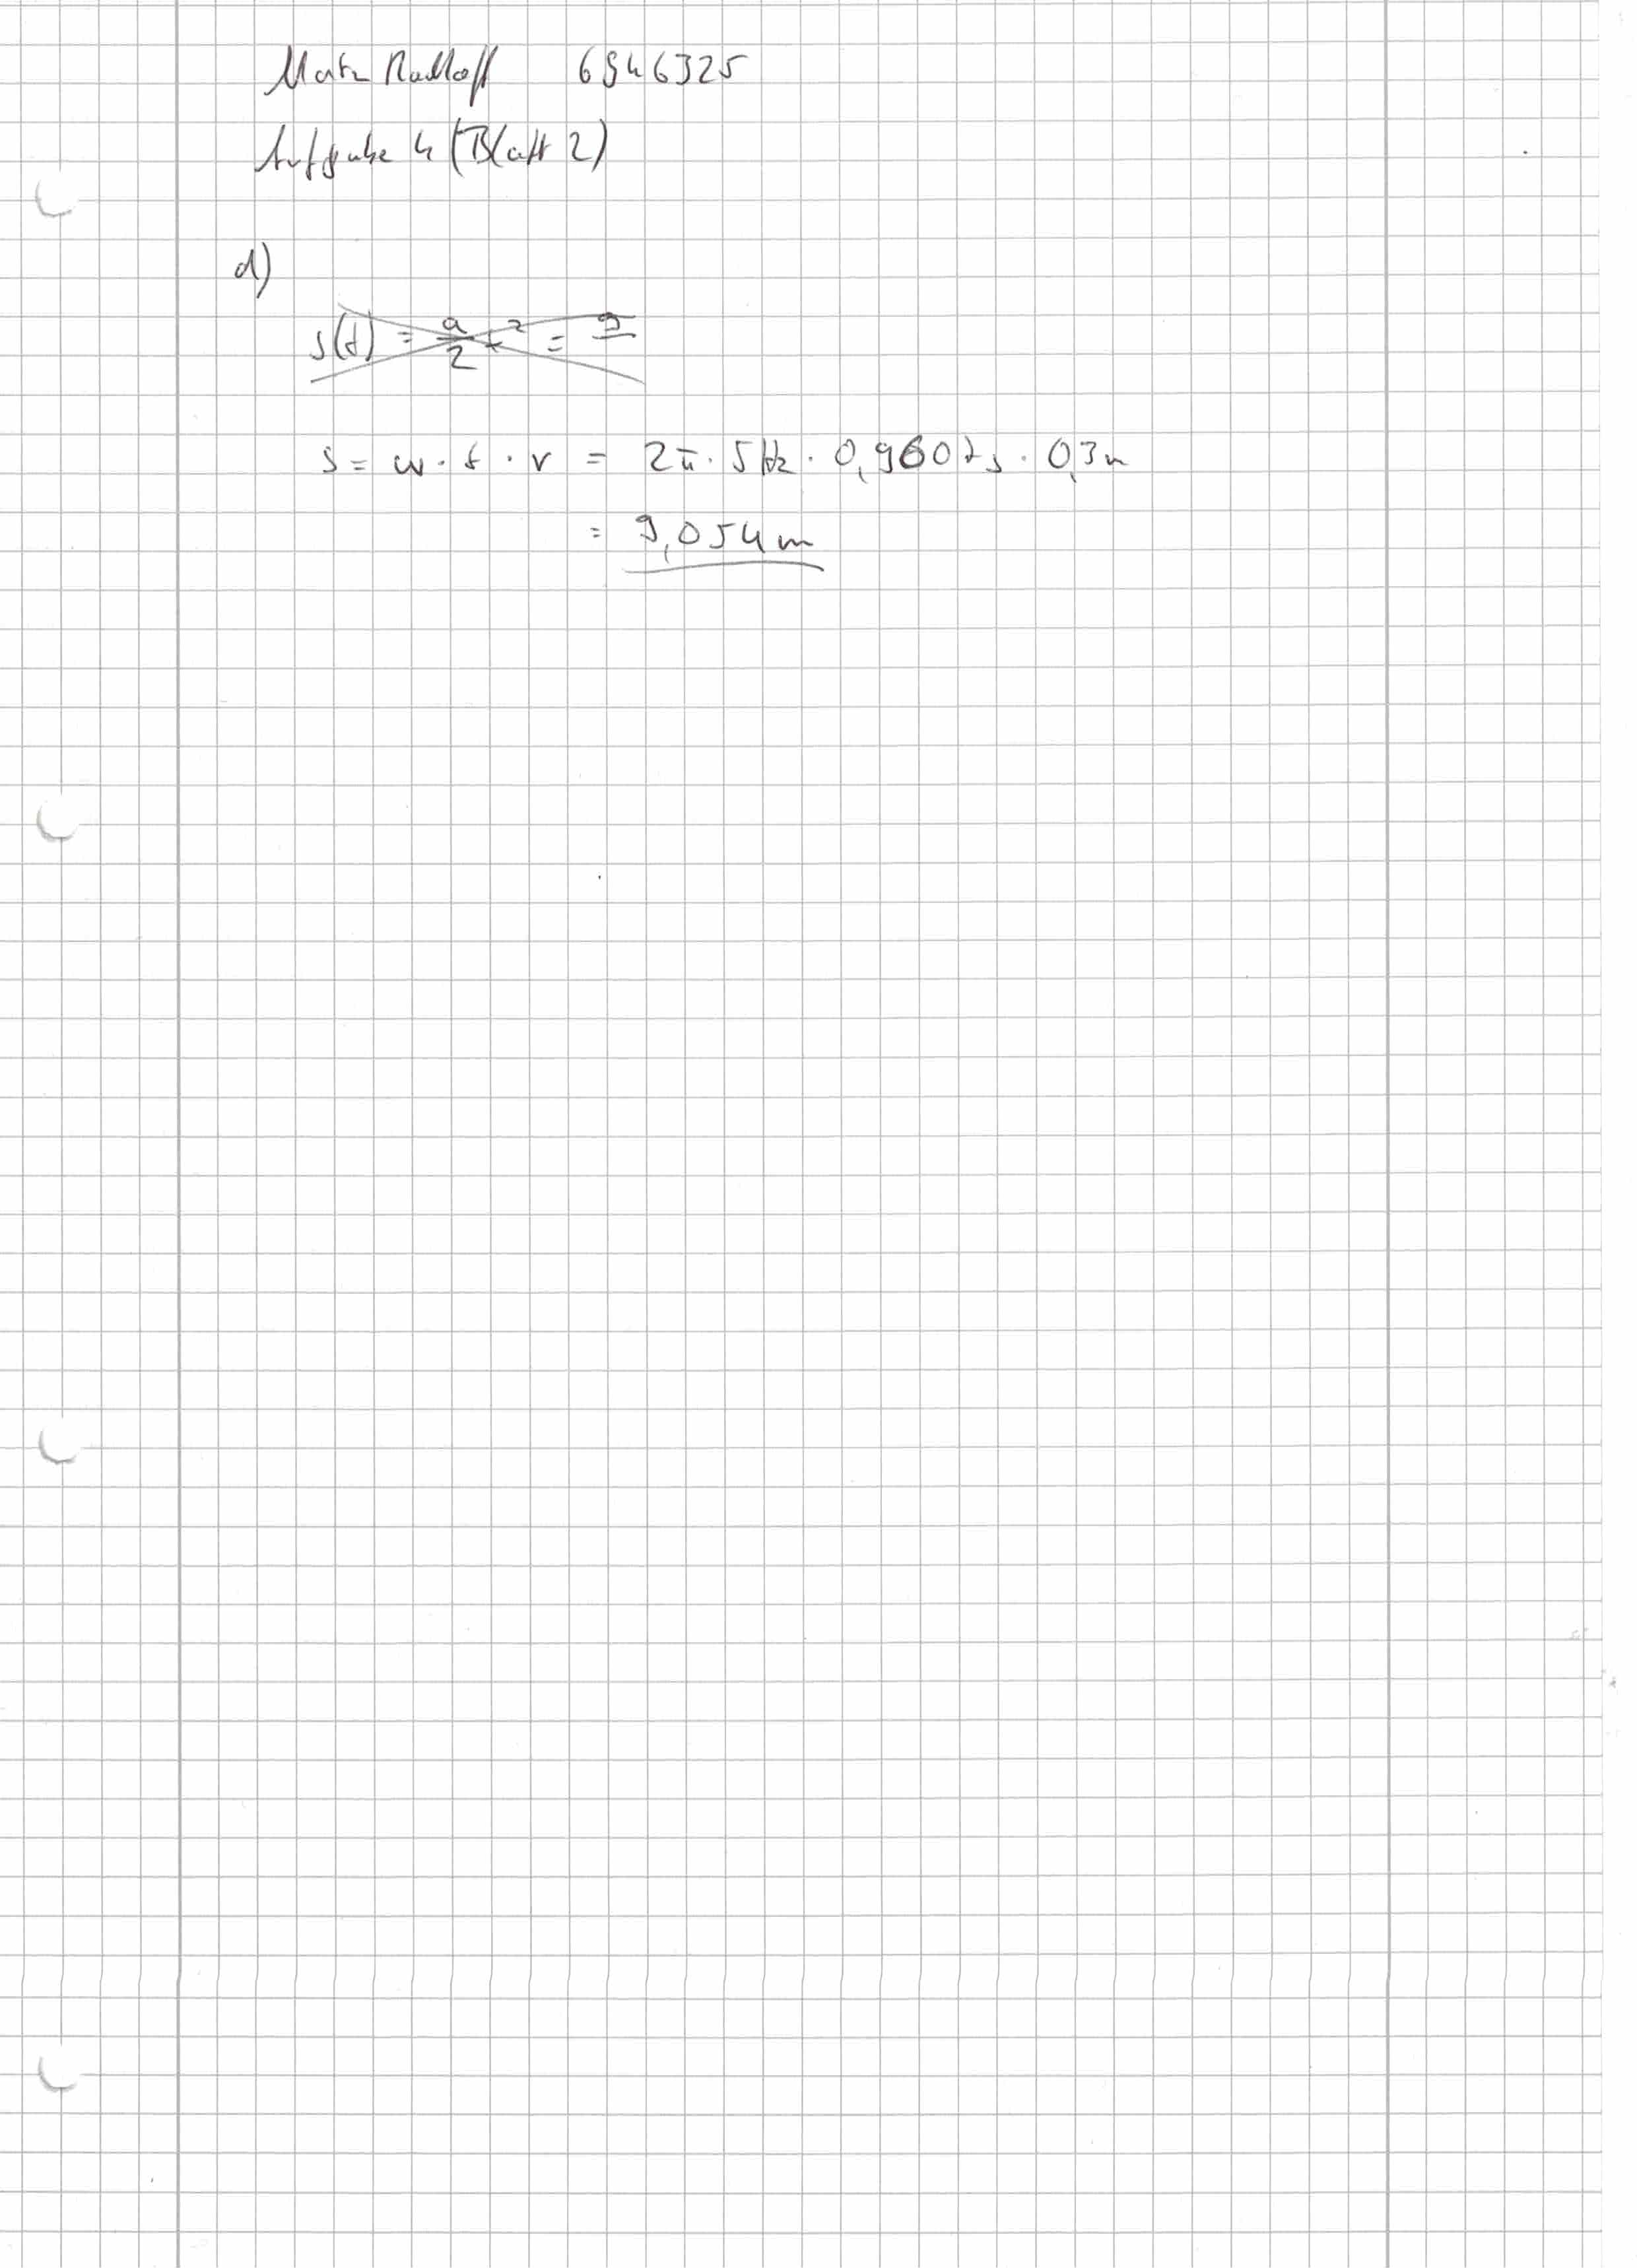 Radloff 6946325
Aufgabe 4 (Blatt 2)
d)
s(t) = a/2 t² = g
s = ω · t · r = 2π · 5 Hz · 0,9607 s · 0,3 m
= 9,054 m